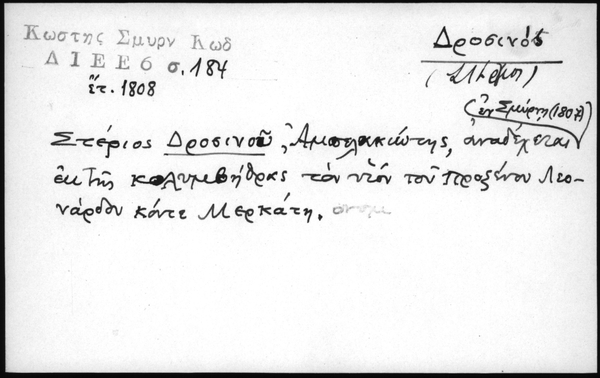 Κωστης Σμυρν Κωδ
ΔΙΕΕ6 σ. 184
ἔτ. 1808
Δροσινὸς
(ἐν Σμύρνῃ (1807)
Στέριος Δροσινοῦ, Ἀμπελακιώτης, ἀναδέχεται
ἐκ τῆς κολυμβήθρας τὸν υἱὸν τοῦ Προξένου Λεο-
νάρδου κόντε Μερκάτη.